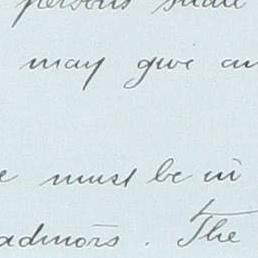 persons shall
may give an
e must be in
admors. The